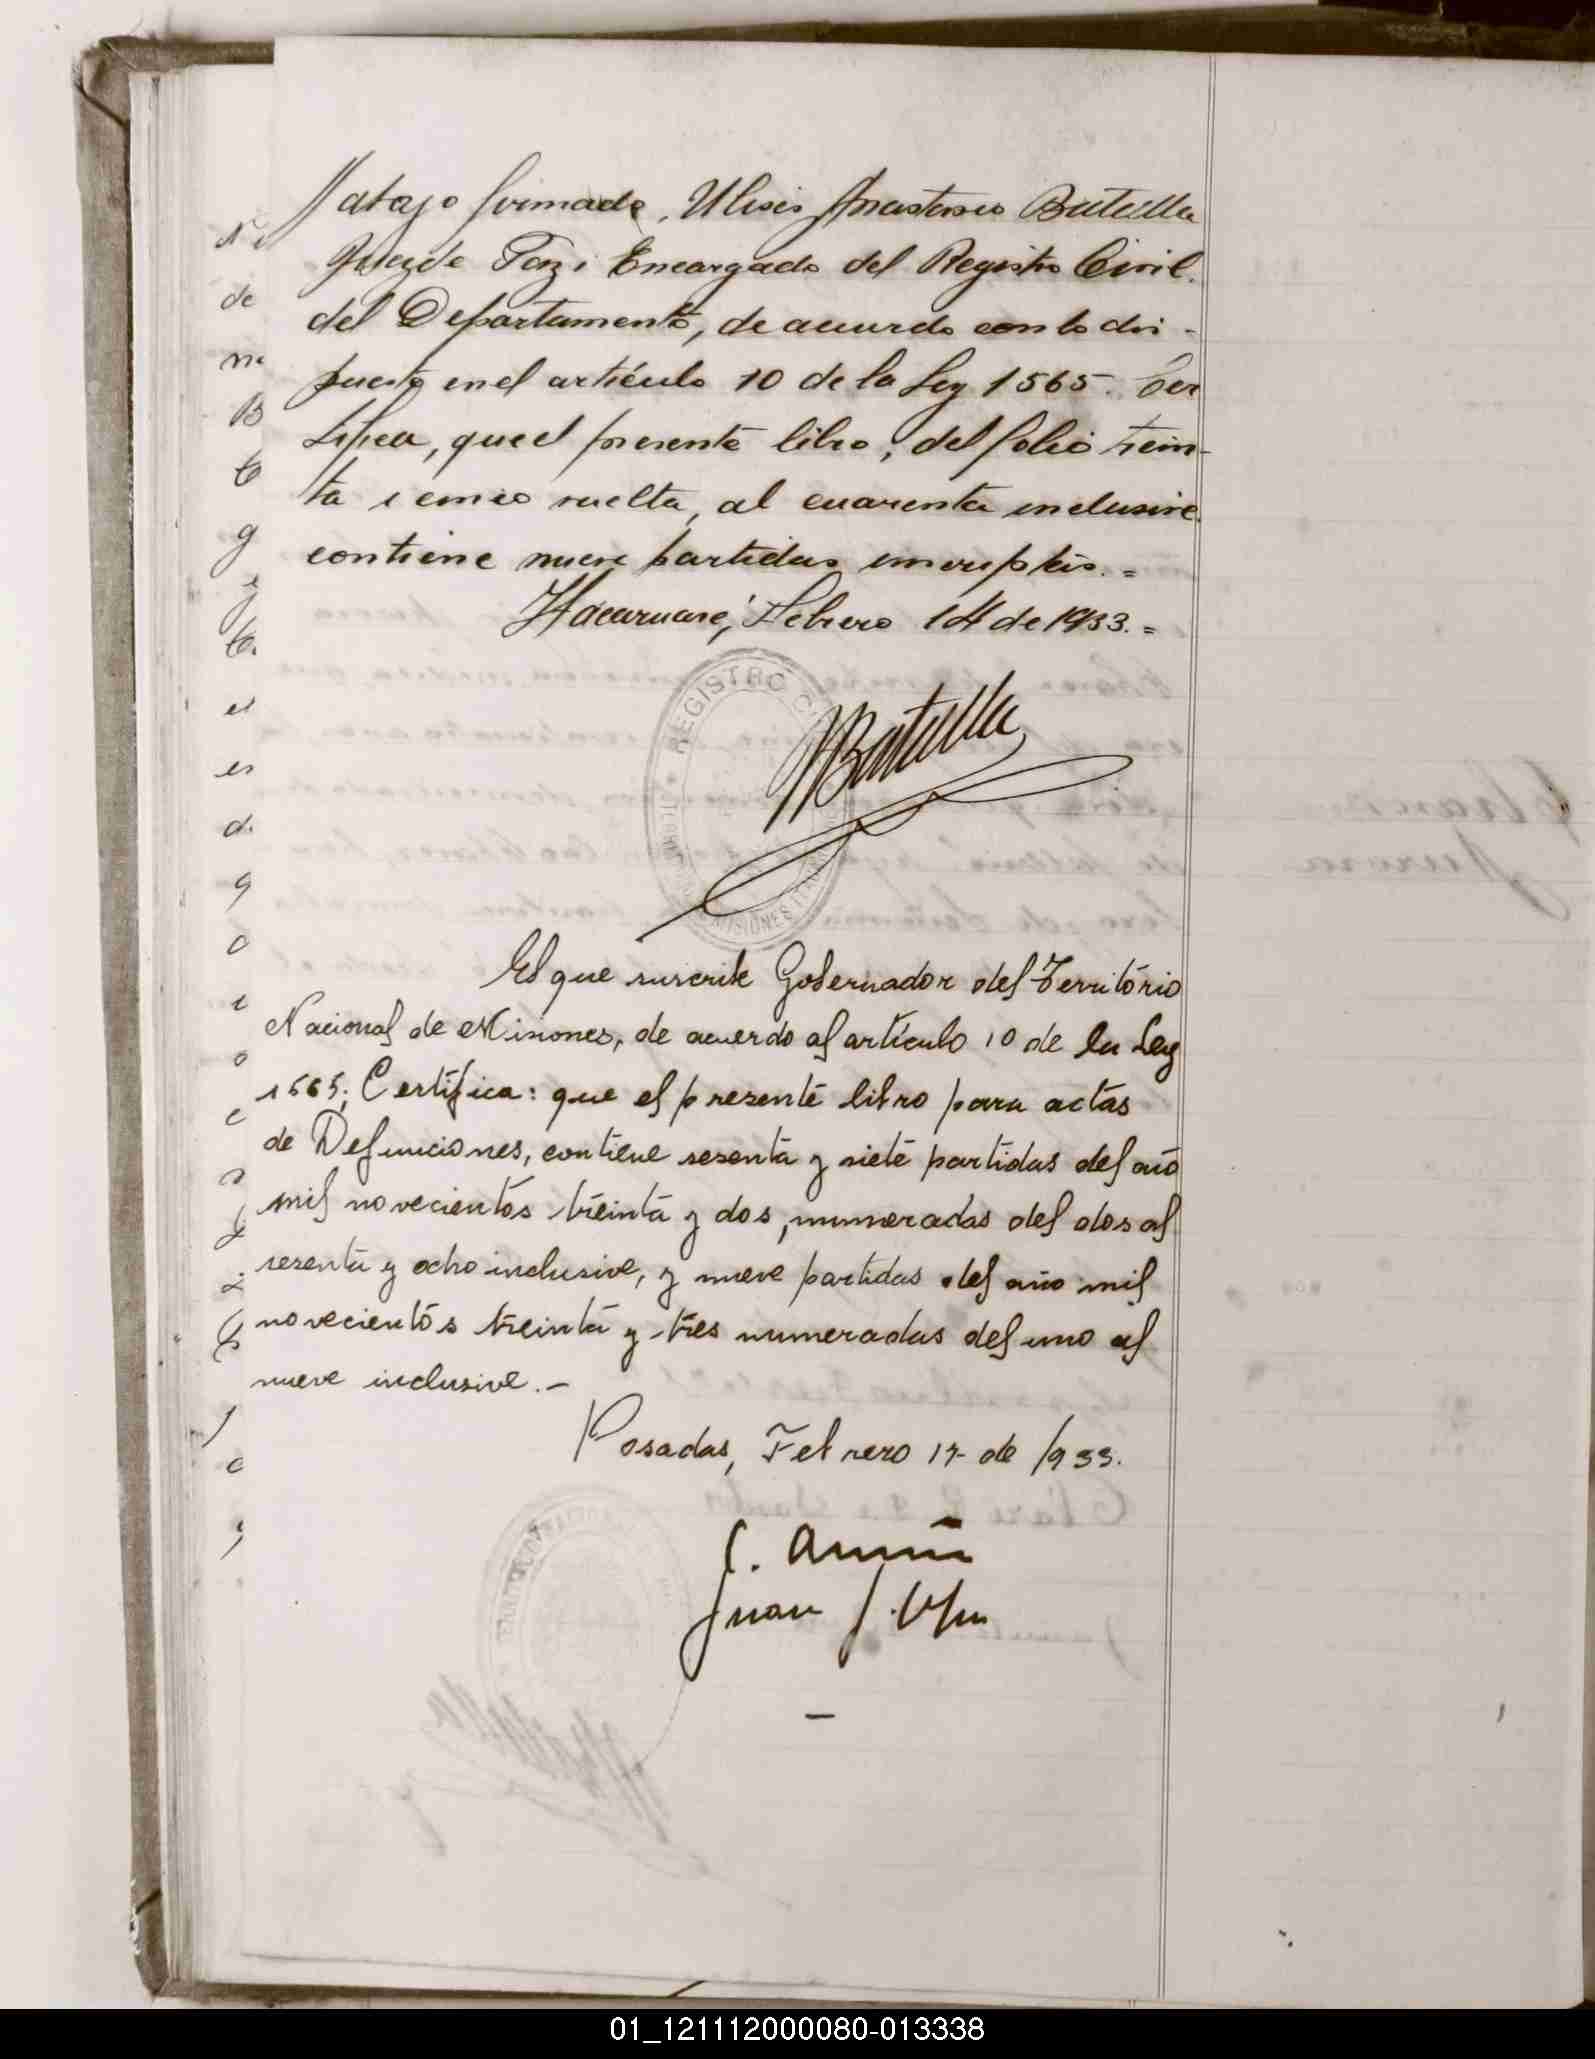 abajo firmado, Ulises Anastasio Batulla
Juez de Paz i Encargado del Registro Civil
del Departamento, de acuerdo con lo dis-
puesto en el artículo 10 de la Ley 1565. Cer
tifica, que el presente libro, del folio trein-
ta i cinco vuelta, al cuarenta inclusive
contiene nueve partidas inscriptas.=
Itacaruaré, Febrero 14 de 1933.=
REGISTRO
MISIONES
Batulla
El que suscribe Gobernador del Território
Nacional de Misiones, de acuerdo al artículo 10 de la Ley
1565; Certifica: que el presente libro para actas
de Defunciones, contiene sesenta y siete partidas del año
mil novecientos treinta y dos, numeradas del dos al
sesenta y ocho inclusive, y nueve partidas del año mil
novecientos treinta y tres numeradas del uno al
nueve inclusive.-
Posadas, Febrero 17 de 1933.
Juan J.
01_121112000080-013338